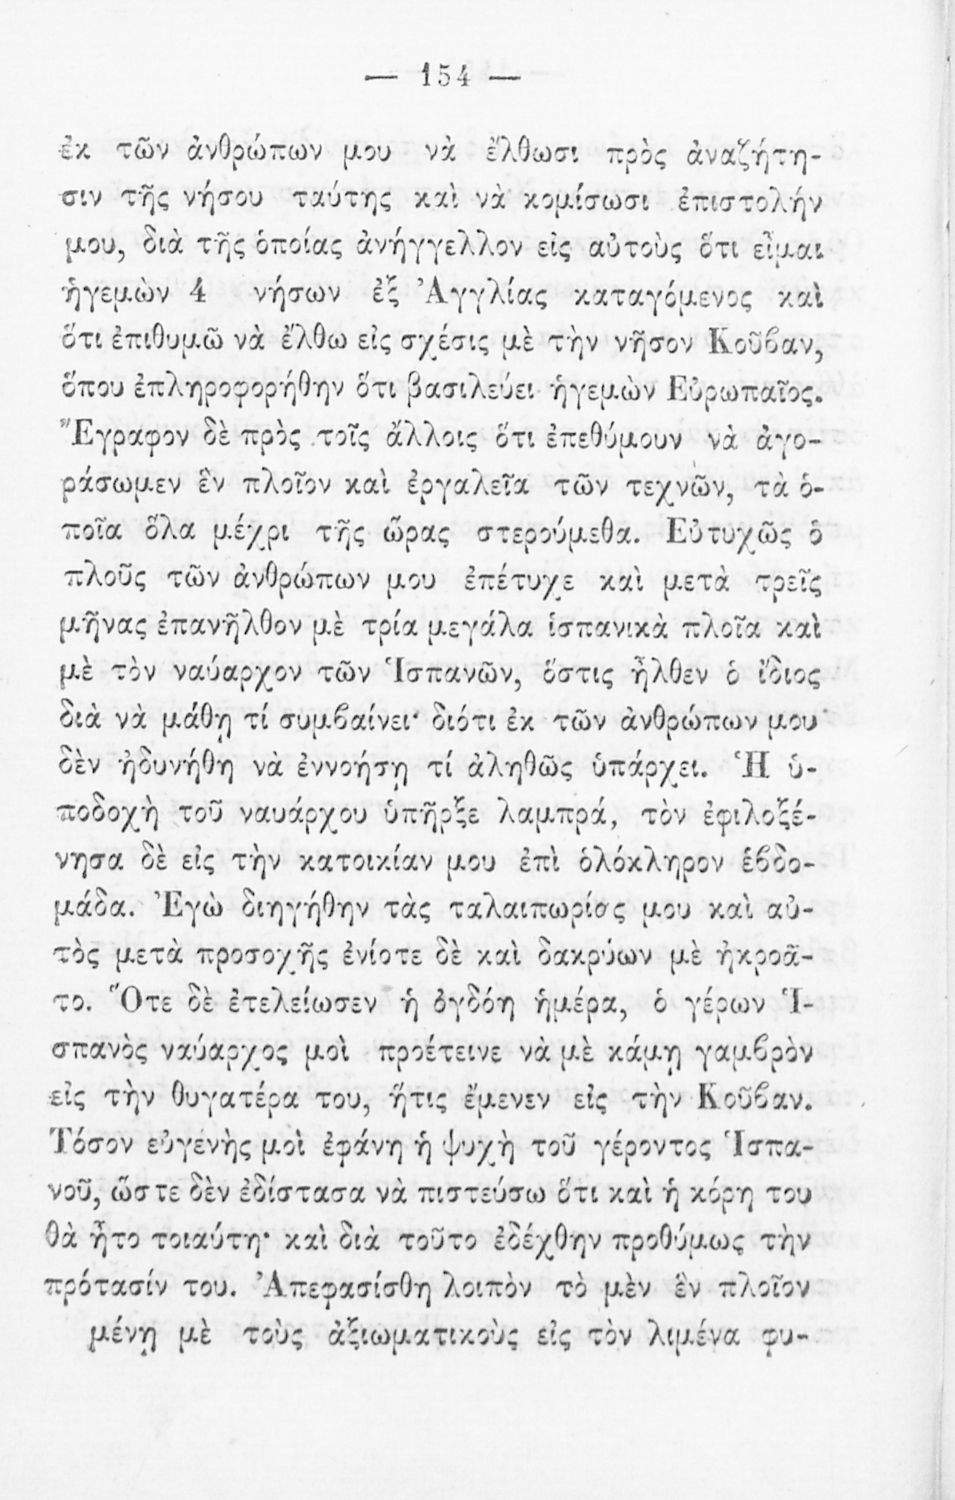 — 154 —
ἐκ τῶν ἀνθρώπων μου νὰ ἔλθωσι πρὸς ἀναζήτη-
σιν τῆς νήσου ταύτης καὶ νὰ κομίσωσι ἐπιστολήν
μου, διὰ τῆς ὁποίας ἀνήγγελλον εἰς αὐτοὺς ὅτι εἶμαι
ἡγεμὼν 4 νήσων ἐξ Ἀγγλίας καταγόμενος καὶ
ὅτι ἐπιθυμῶ νὰ ἔλθω εἰς σχέσις μὲ τὴν νῆσον Κοῦβαν,
ὅπου ἐπληροφορήθην ὅτι βασιλεύει ἡγεμὼν Εὐρωπαῖος.
Ἔγραφον δὲ πρὸς τοῖς ἄλλοις ὅτι ἐπεθύμουν νὰ ἀγο-
ράσωμεν ἓν πλοῖον καὶ ἐργαλεῖα τῶν τεχνῶν, τὰ ὁ-
ποῖα ὅλα μέχρι τῆς ὥρας στερούμεθα. Εὐτυχῶς ὁ
πλοῦς τῶν ἀνθρώπων μου ἐπέτυχε καὶ μετὰ τρεῖς
μῆνας ἐπανῆλθον μὲ τρία μεγάλα ἱσπανικὰ πλοῖα καὶ
μὲ τὸν ναύαρχον τῶν Ἱσπανῶν, ὅστις ἦλθεν ὁ ἴδιος
διὰ νὰ μάθῃ τί συμβαίνει· διότι ἐκ τῶν ἀνθρώπων μου
δὲν ἠδυνήθη νὰ ἐννοήσῃ τί ἀληθῶς ὑπάρχει. Ἡ ὑ-
ποδοχὴ τοῦ ναυάρχου ὑπῆρξε λαμπρά, τὸν ἐφιλοξέ-
νησα δὲ εἰς τὴν κατοικίαν μου ἐπὶ ὁλόκληρον ἑβδο-
μάδα. Ἐγὼ διηγήθην τὰς ταλαιπωρίας μου καὶ αὐ-
τὸς μετὰ προσοχῆς ἐνίοτε δὲ καὶ δακρύων μὲ ἠκροᾶ-
το. Ὅτε δὲ ἐτελείωσεν ἡ ὀγδόη ἡμέρα, ὁ γέρων Ἱ-
σπανὸς ναύαρχος μοὶ προέτεινε νὰ μὲ κάμῃ γαμβρὸν
εἰς τὴν θυγατέρα του, ἥτις ἔμενεν εἰς τὴν Κοῦβαν.
Τόσον εὐγενὴς μοὶ ἐφάνη ἡ ψυχὴ τοῦ γέροντος Ἱσπα-
νοῦ, ὥστε δὲν ἐδίστασα νὰ πιστεύσω ὅτι καὶ ἡ κόρη του
θὰ ἦτο τοιαύτη· καὶ διὰ τοῦτο ἐδέχθην προθύμως τὴν
πρότασίν του. Ἀπεφασίσθη λοιπὸν τὸ μὲν ἓν πλοῖον
μένῃ μὲ τοὺς ἀξιωματικοὺς εἰς τὸν λιμένα φυ-